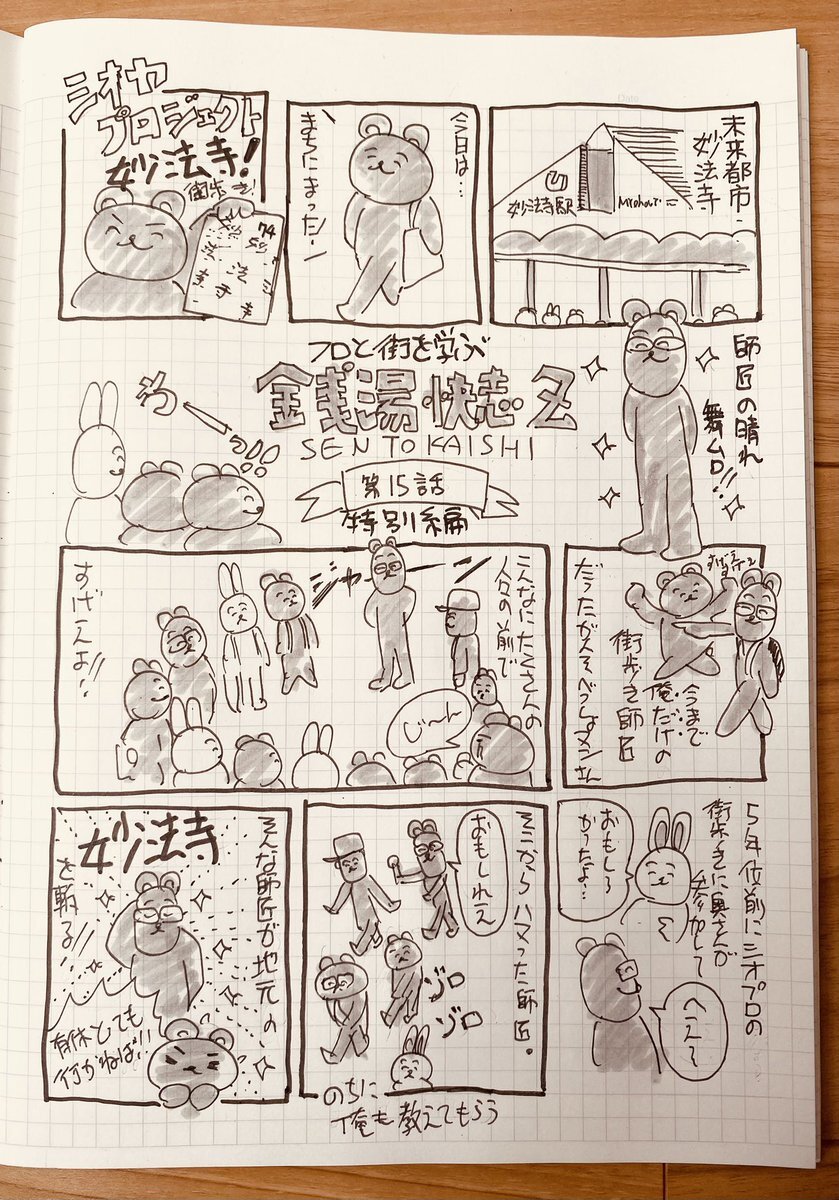 未来都市
妙法寺
妙法寺駅
今日は…
まちにまった!
シオヤ
プロジェクト
妙法寺!
街歩き!
フロと街を学ぶ
金銭湯・快志・Z
SENTO KAISHI
第15話
特別編
師匠の晴れ
舞台!!
今まで
俺だけの
街歩き師匠
こんなにたくさんの
人々の前で
ジャーーン
じ〜〜ん
すげえよ!!
5年位前にシオプロの
街歩きに奥さんが
参加して
おもしろ
かったよ…
へえ〜
そこからハマった師匠。
おもしれえ
ゾロ
ゾロ
のちに
俺も教えてもらう
そんな師匠が地元の
妙法寺
を斬る!!
有休とっても
行かねば!!